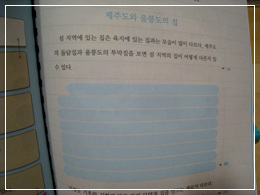 제주도와 울릉도의 집
섬 지역에 있는 집은 육지에 있는 집과는 모습이 많이 다르다. 제주도
의 돌담집과 울릉도의 투막집을 보면 섬 지역의 집이 어떻게 다른지 알
수 있다.